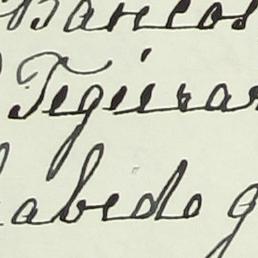 Bancos
Tegirar
abido g